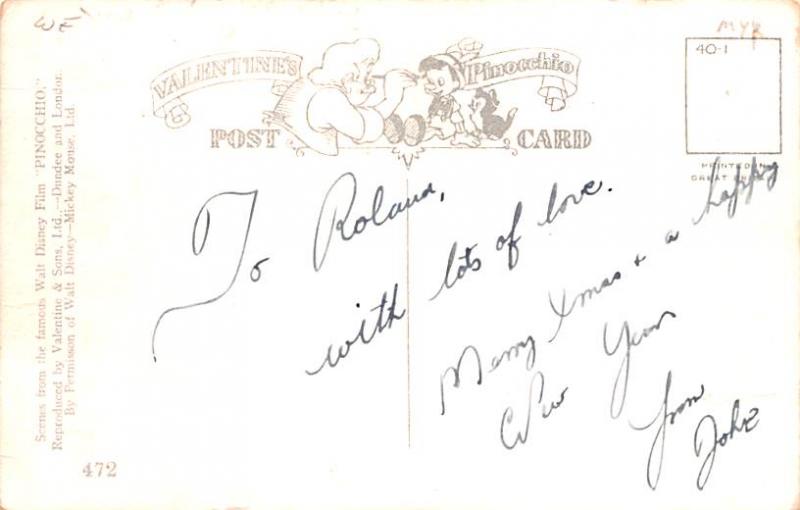 WE
MYK
VALENTINE'S
Pinocchio
POST CARD
40-1
PRINTED IN
GREAT
Scenes from the famous Walt Disney Film "PINOCCHIO."
Reproduced by Valentine & Sons, Ltd.,—Dundee and London.
By Permission of Walt Disney—Mickey Mouse, Ltd.
472
To Roland,
with lots of love.
Merry Xmas + a happy
New Year
from
John